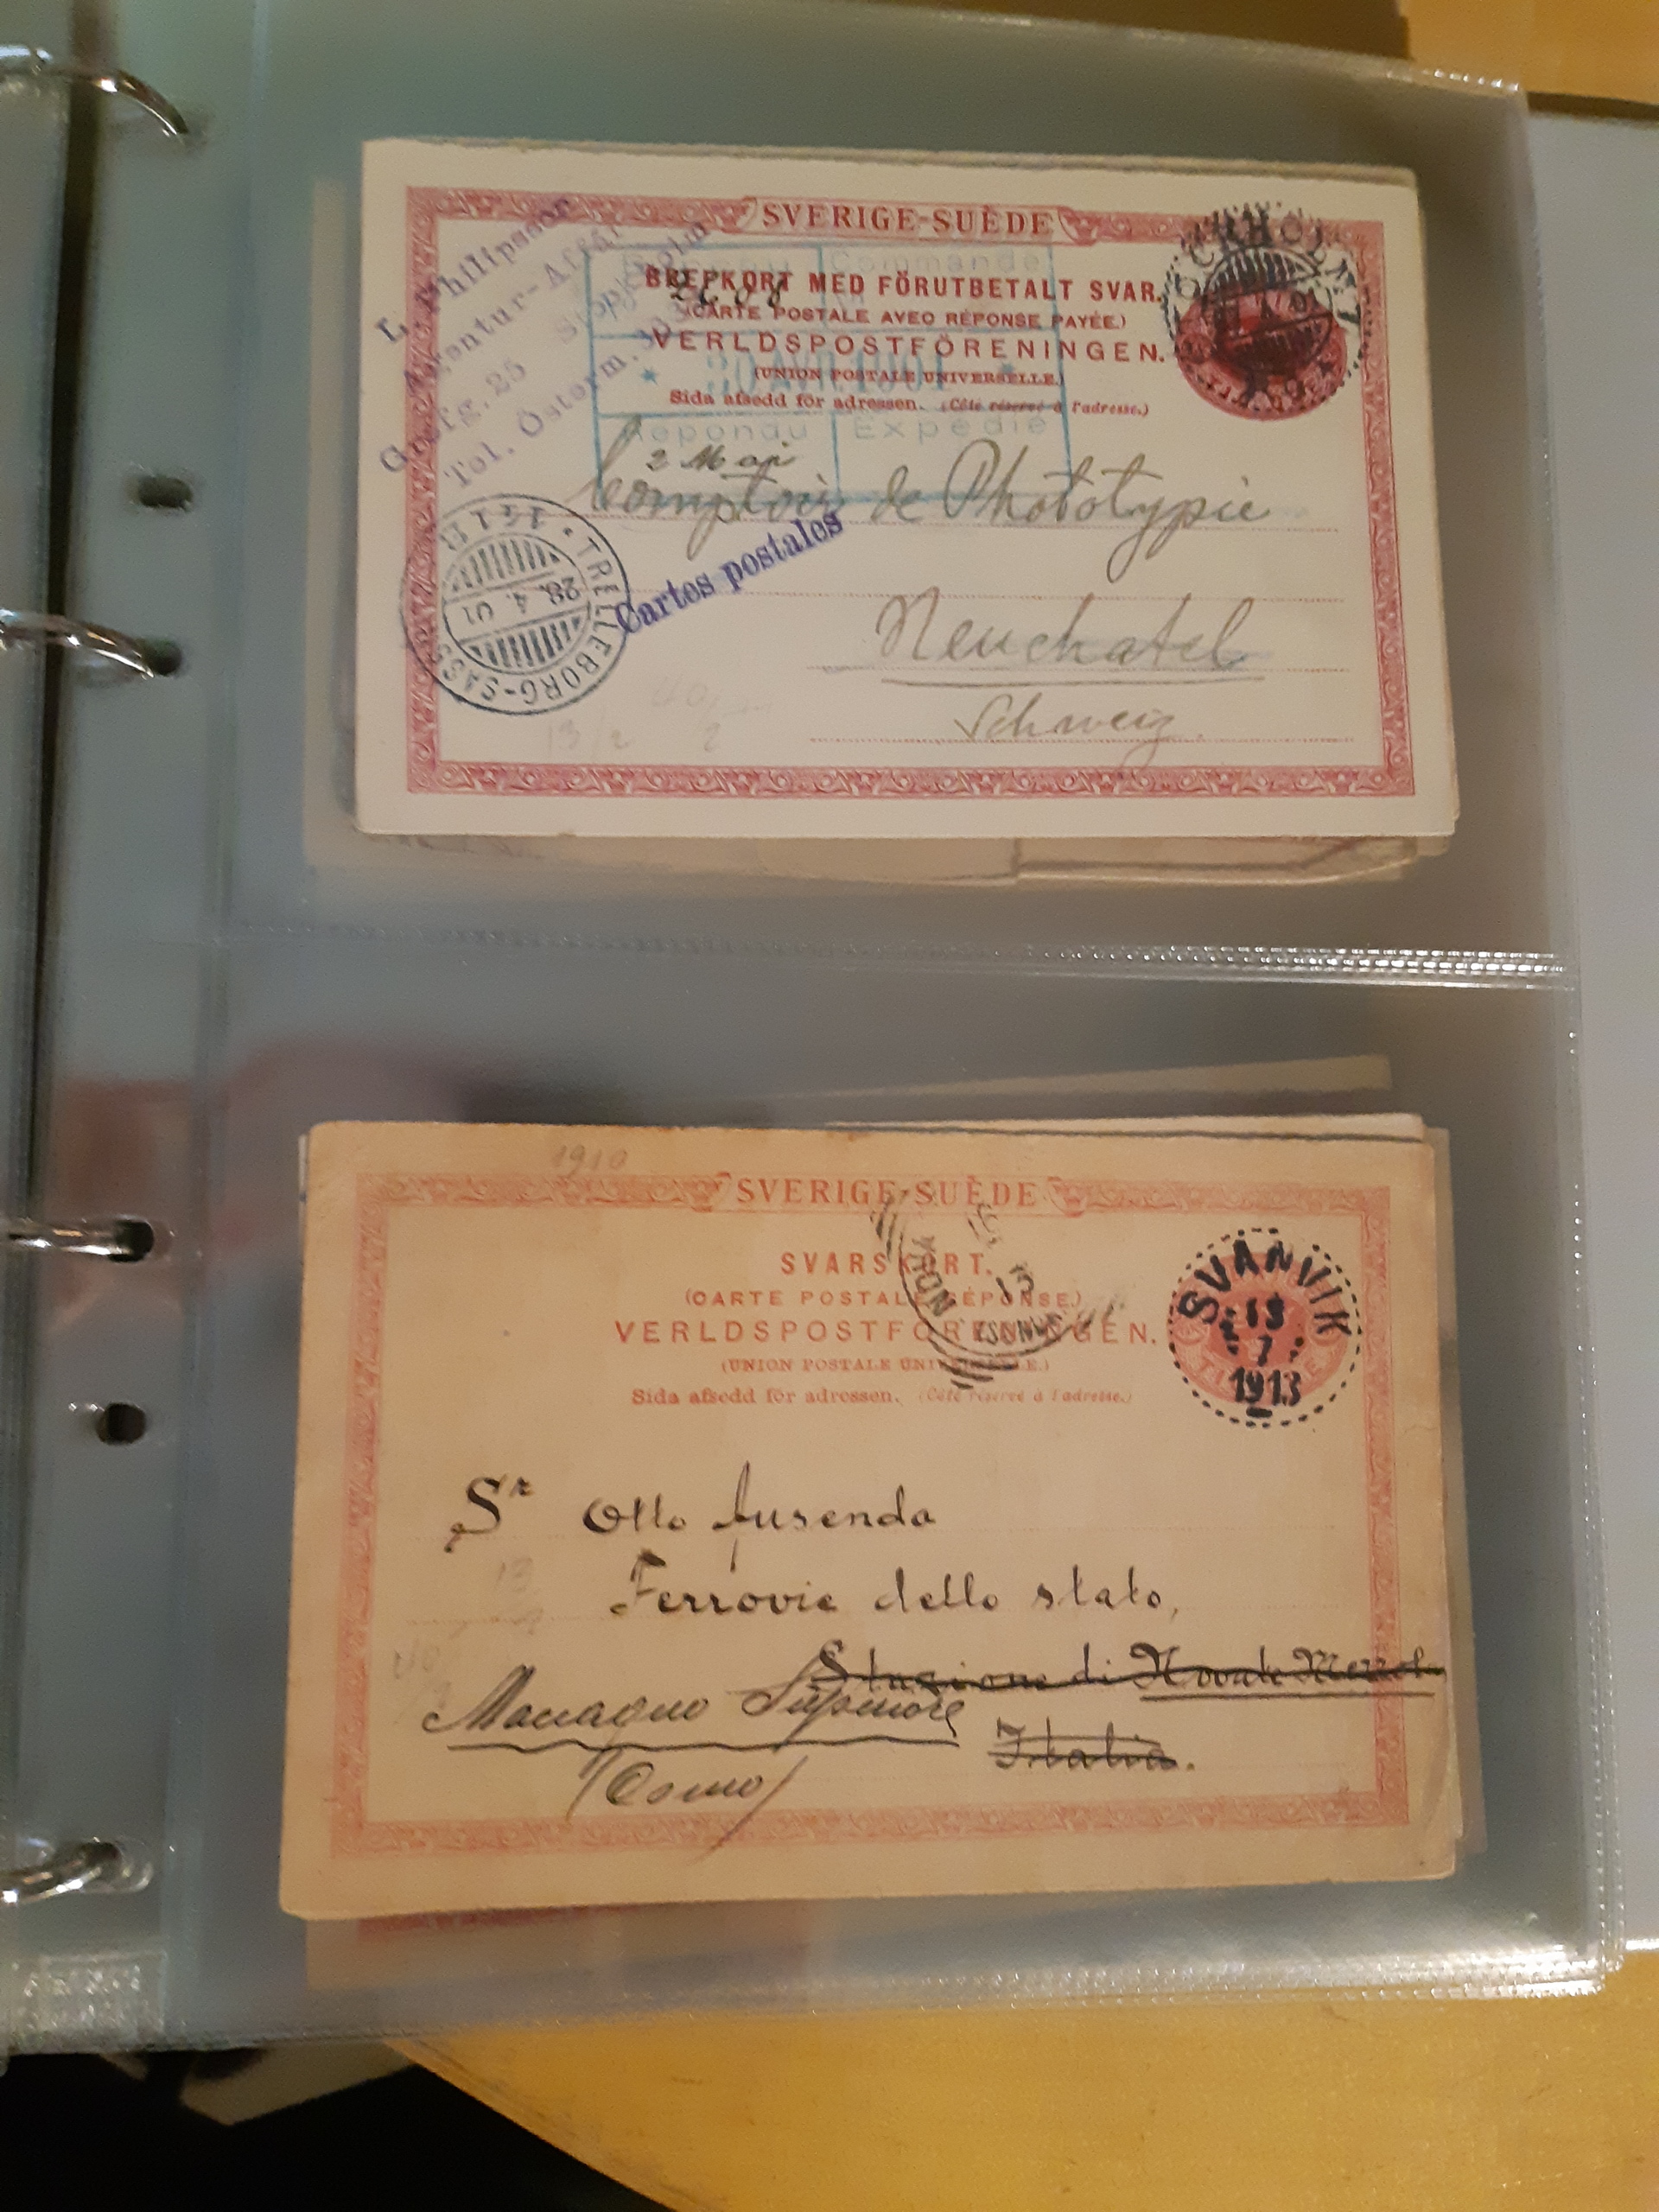 SVERIGE-SUÈDE
L. Philipsson
Agentur-Affär
Grefg. 25
Tel. Österm.
BREFKORT MED FÖRUTBETALT SVAR.
(CARTE POSTALE AVEC RÉPONSE PAYÉE.)
VERLDSPOSTFÖRENINGEN.
(UNION POSTALE UNIVERSELLE.)
Sida afsedd för adressen. (Côté réservé à l'adresse.)
Commande
Répondu Expédié
2 Mai
Comptoir de Phototypie
Cartes postales
TRELLEBORG-SASS
28. 4. 01
Neuchatel
Schweiz.
13/2
1910
SVERIGE-SUÈDE
SVARSKORT.
(CARTE POSTALE RÉPONSE.)
VERLDSPOSTFÖRENINGEN.
(UNION POSTALE UNIVERSELLE.)
Sida afsedd för adressen. (Côté réservé à l'adresse.)
SVANVIK
18
7
1913
Sr Otto
Ferrovie dello stato,
Stazione di
Maccagno Superiore
Italia.
(Como)